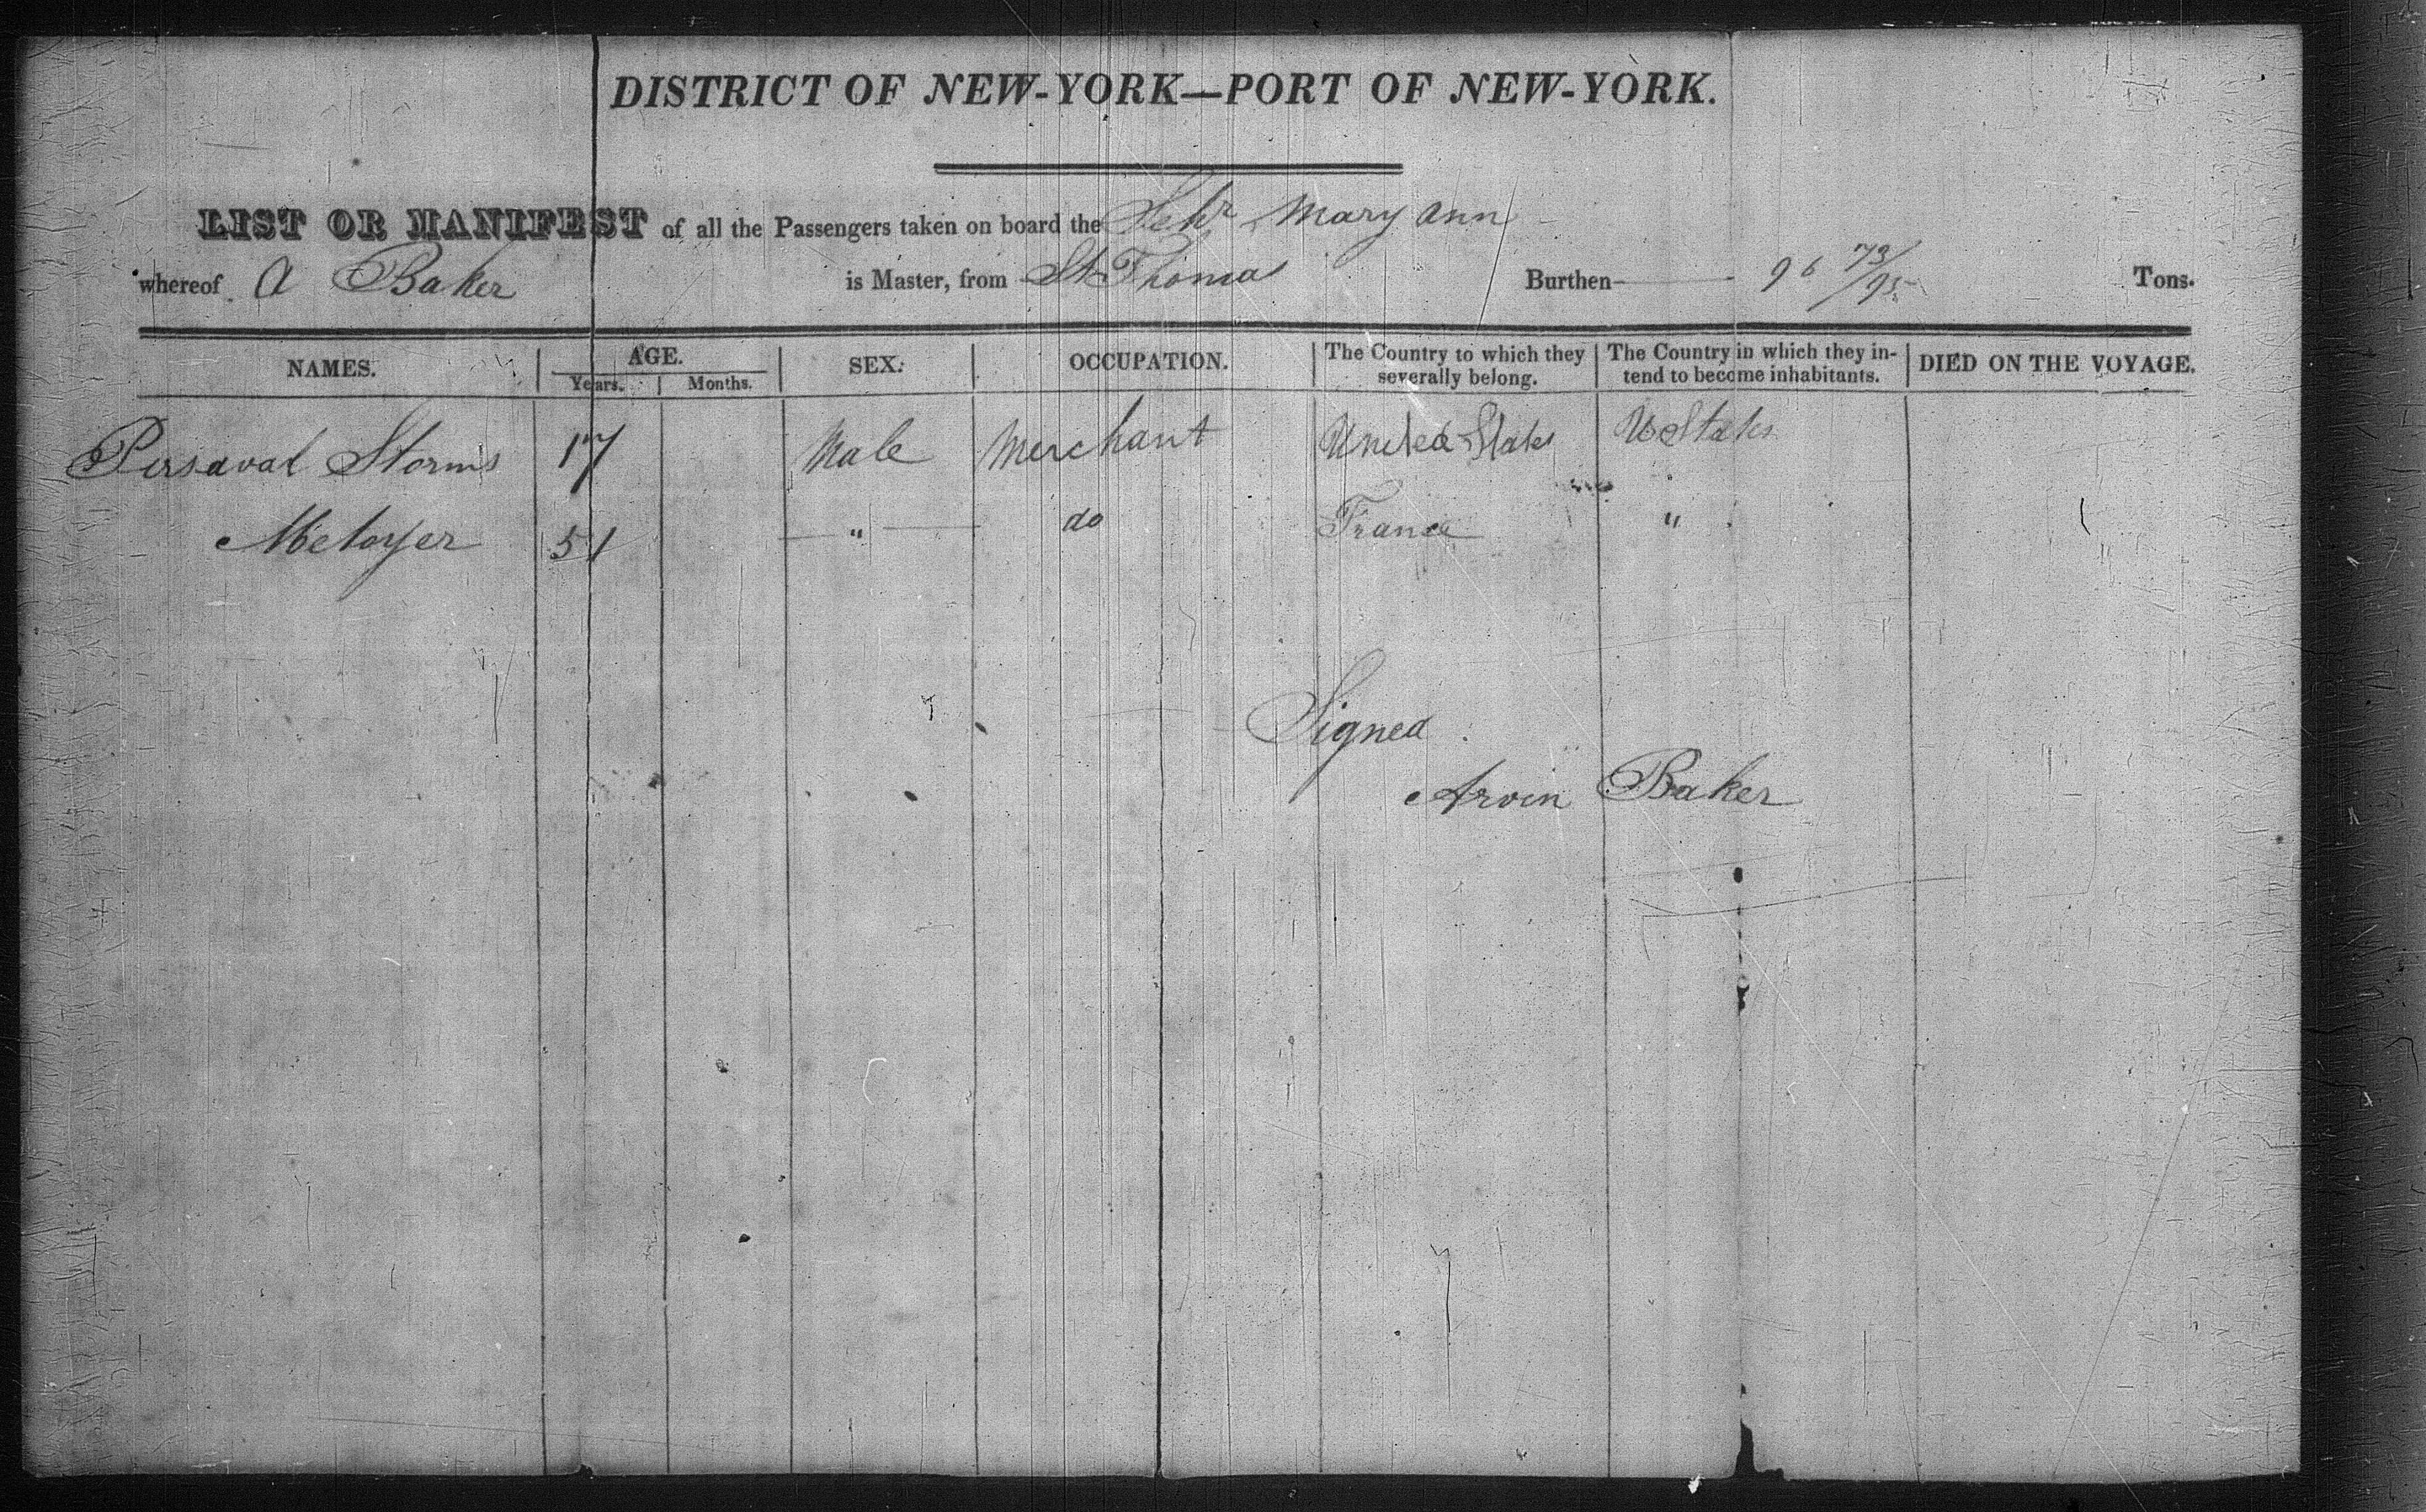 DISTRICT OF NEW-YORK—PORT OF NEW-YORK.
LIST OR MANIFEST of all the Passengers taken on board the Schr Mary Ann
whereof A Baker is Master, from St Thomas Burthen 96 73/95 Tons.
NAMES. AGE. SEX. OCCUPATION. The Country to which they severally belong. The Country in which they intend to become inhabitants. DIED ON THE VOYAGE.
Years. Months.
Persaval Storms 17 Male Merchant United States U States
Metoyer 51 " do France "
Signed
Arvin Baker